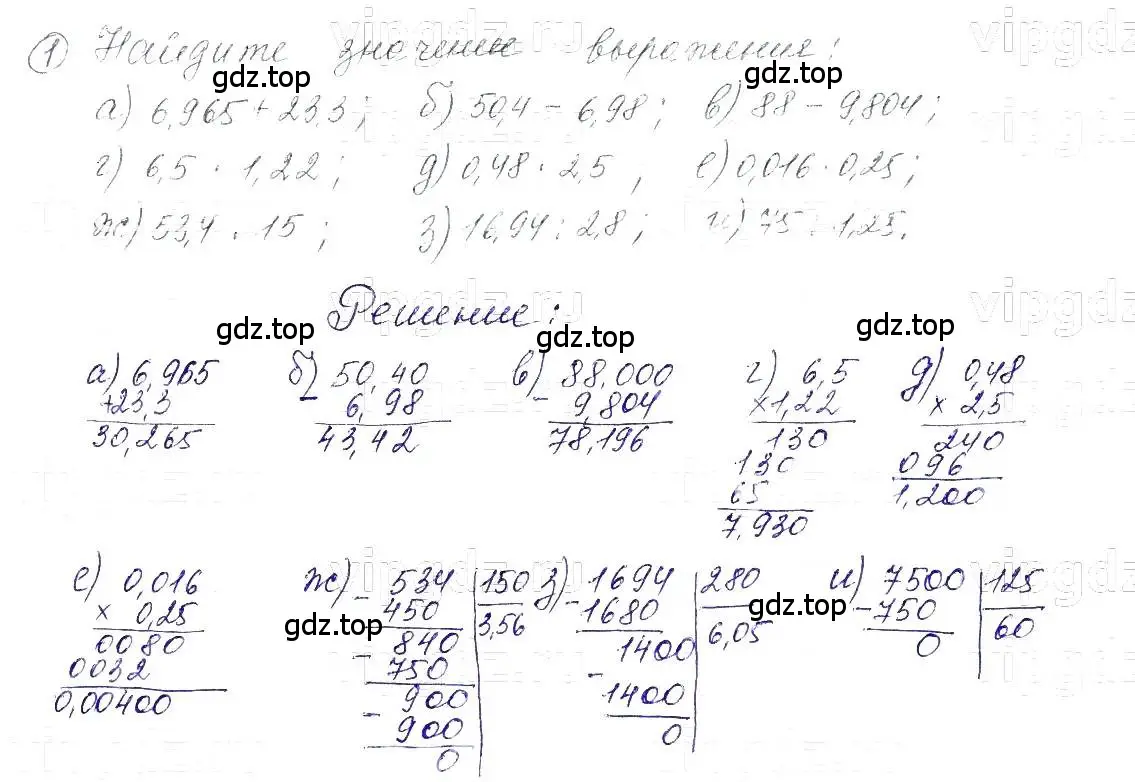 ① Найдите значение выражения:
а) 6,965 + 23,3; б) 50,4 - 6,98; в) 88 - 9,804;
г) 6,5 · 1,22; д) 0,48 · 2,5; е) 0,016 · 0,25;
ж) 53,4 : 15; з) 16,94 : 2,8; и) 75 : 1,25.
Решение:
а) 6,965 б) 50,40 в) 88,000 г) 6,5 д) 0,48
+23,3 - 6,98 - 9,804 ×1,22 × 2,5
30,265 43,42 78,196 130 240
130 096
65 1,200
7,930
е) 0,016 ж) - 534 150 з) - 1694 280 и) - 7500 125
× 0,25 450 3,56 1680 6,05 750 60
0080 - 840 1400 0
0032 750 - 1400
0,00400 - 900 0
900
0
vipgdz.ru
vipgdz.ru
gdz.top
gdz.top
gdz.top
gdz.top
gdz.top
gdz.top